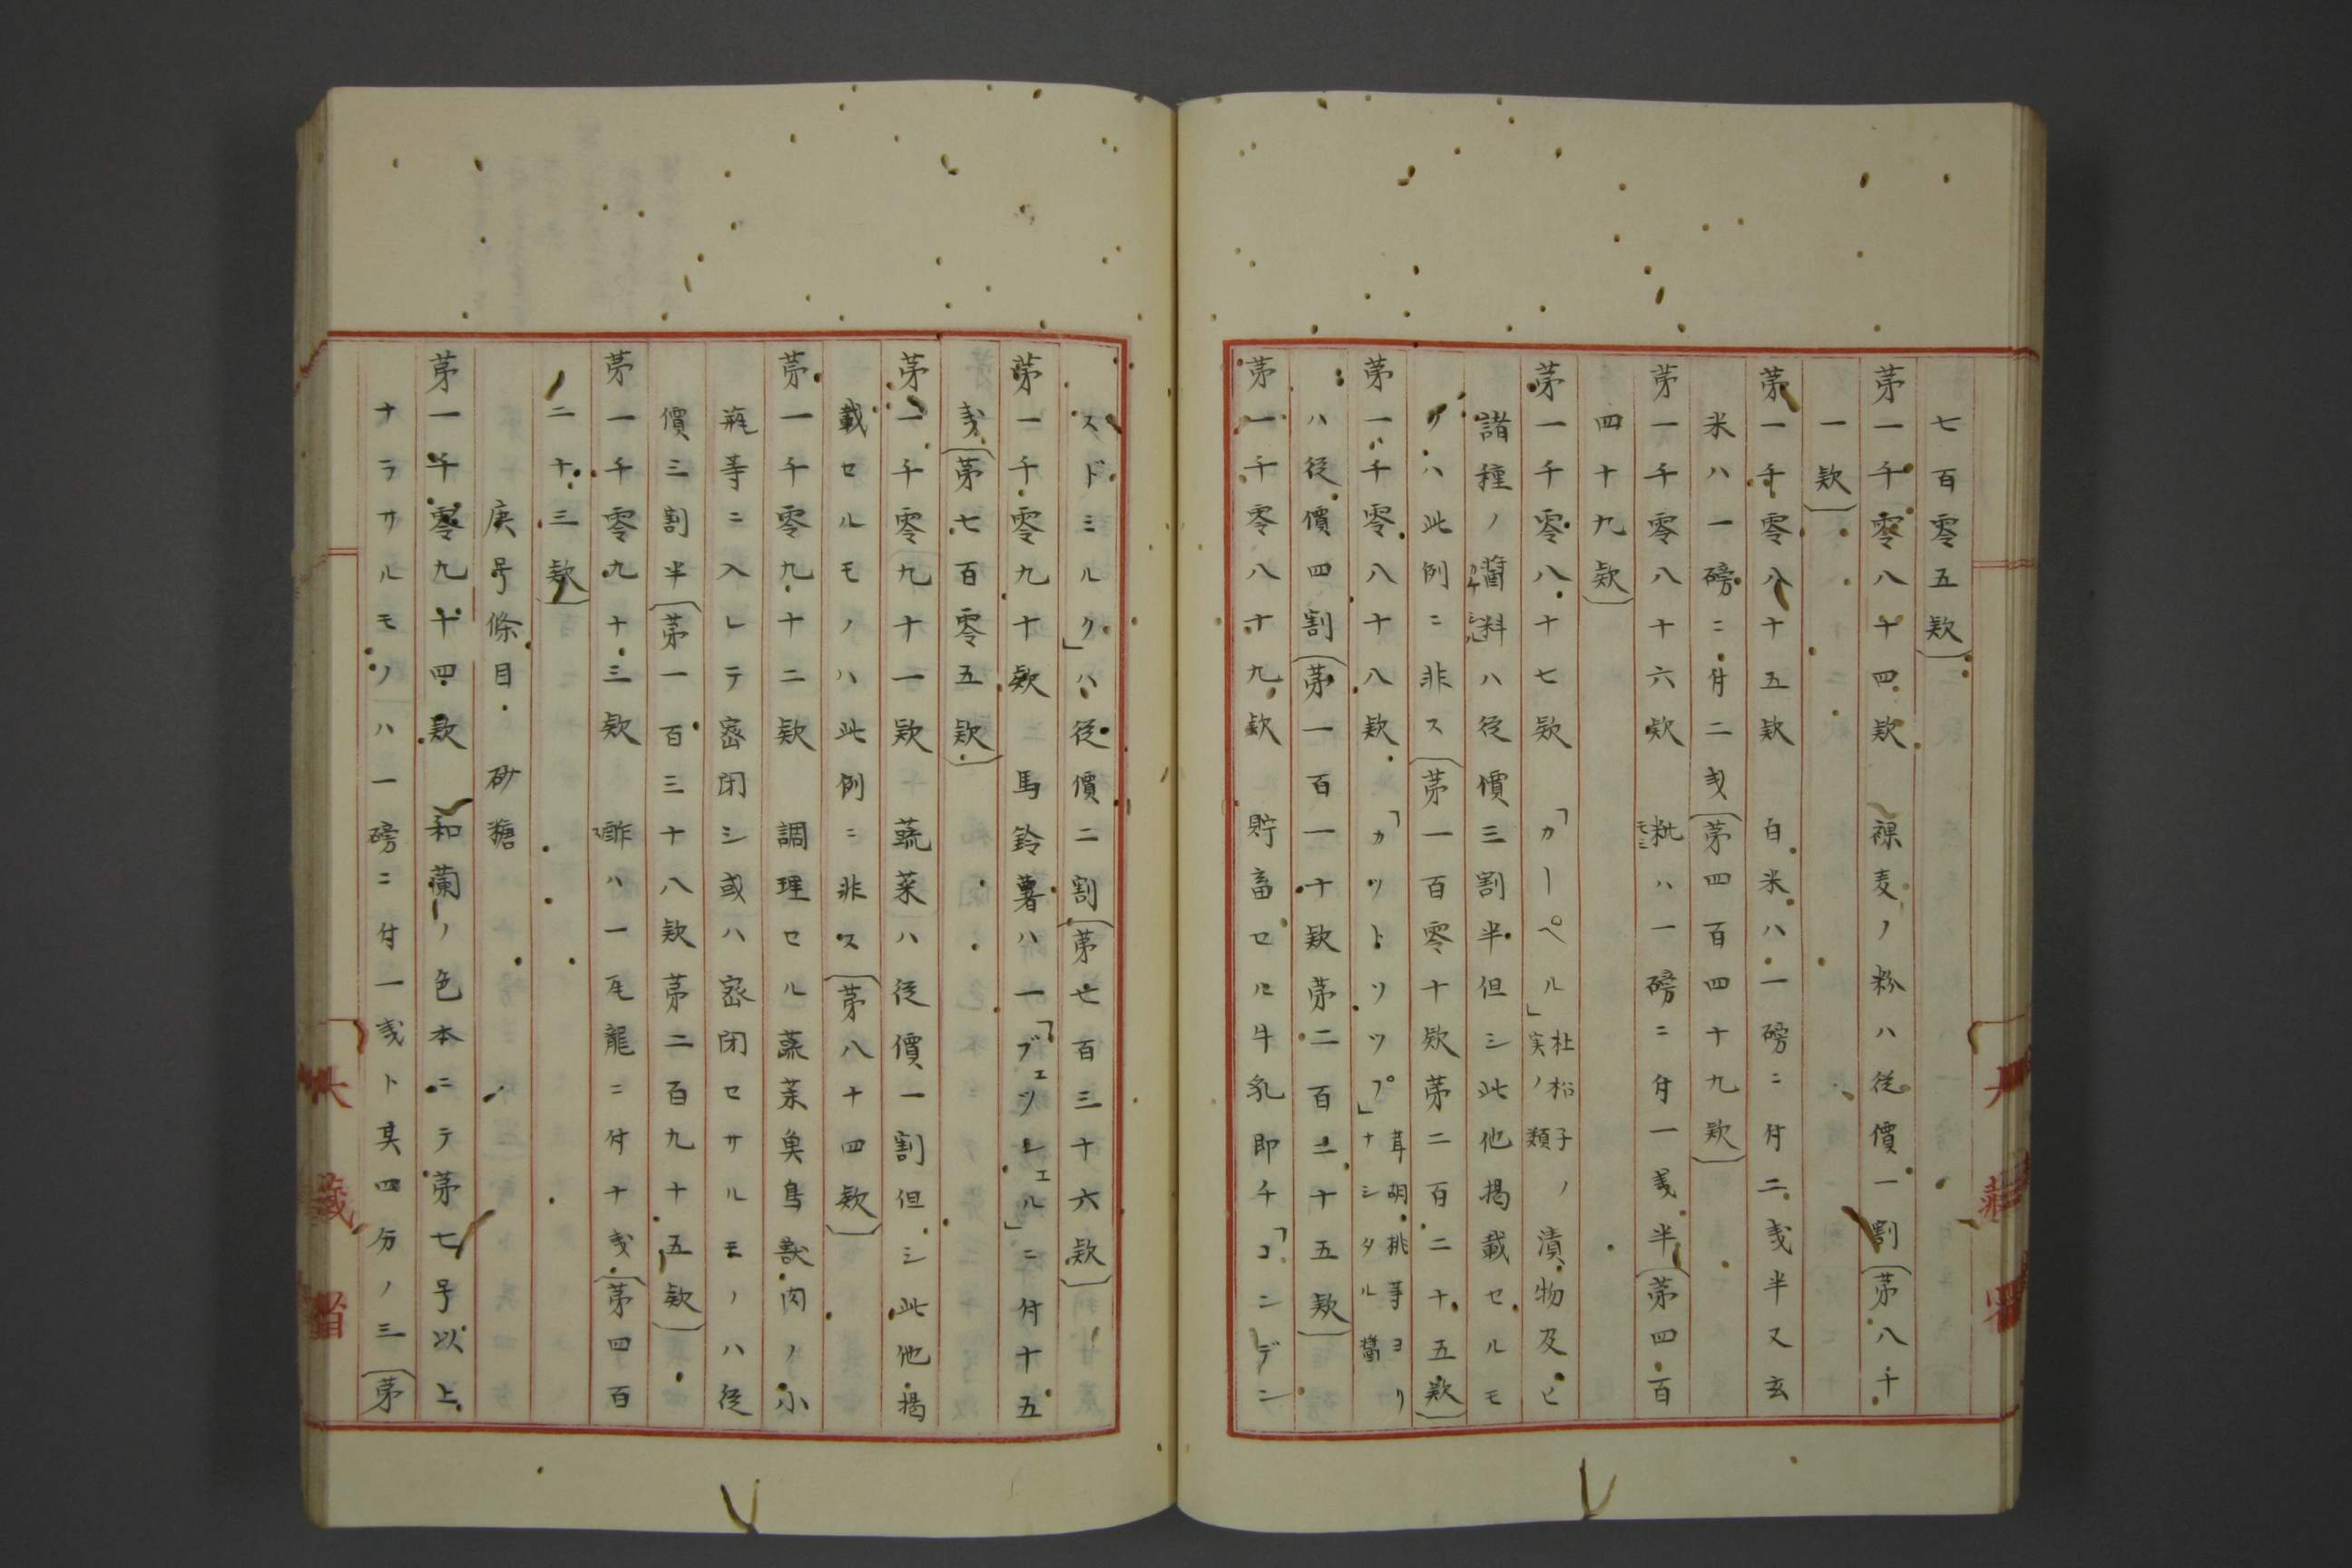 七百零五欵）
第一千零八十四欵　裸麦ノ粉ハ従價一割（第八千
一欵）
第一千零八十五欵　白米ハ一磅ニ付二戔半又玄
米ハ一磅ニ付二戔（第四百四十九欵）
第一千零八十六欵　籾モミハ一磅ニ付一戔半（第四百
四十九欵）
第一千零八十七欵　「カーペル」杜松子実ノ類ノ漬物及ヒ
諸種ノ醤料カケシルハ従價三割半但シ此他掲載セルモ
ノハ此例ニ非ス（第一百零十欵第二百二十五欵）
第一千零八十八欵　「カツトソツプ」茸胡桃等ヨリナシタル醤
ハ従價四割（第一百一十欵第二百二十五欵）
第一千零八十九欵　貯畜セル牛乳即チ「コンデン
スドミルク」ハ従價二割（第七百三十六欵）
第一千零九十欵　馬鈴薯ハ一「ブェツレェル」ニ付十五
戔（第七百零五欵）
第一千零九十一欵　蔬菜ハ従價一割但シ此他掲
載セルモノハ此例ニ非ス（第八十四欵）
第一千零九十二欵　調理セル蔬菜魚鳥獣肉ノ小
瓶等ニ入レテ密閉シ或ハ密閉セサルモノハ従
價三割半（第一百三十八欵第二百九十五欵）
第一千零九十三欵　酢ハ一瓦龍ニ付十戔（第四百
二十三欵）
庚号條目　砂糖
第一千零九十四欵　和蘭ノ色本ニテ第七号以上
ナラサルモノハ一磅ニ付一戔ト其四分ノ三（第